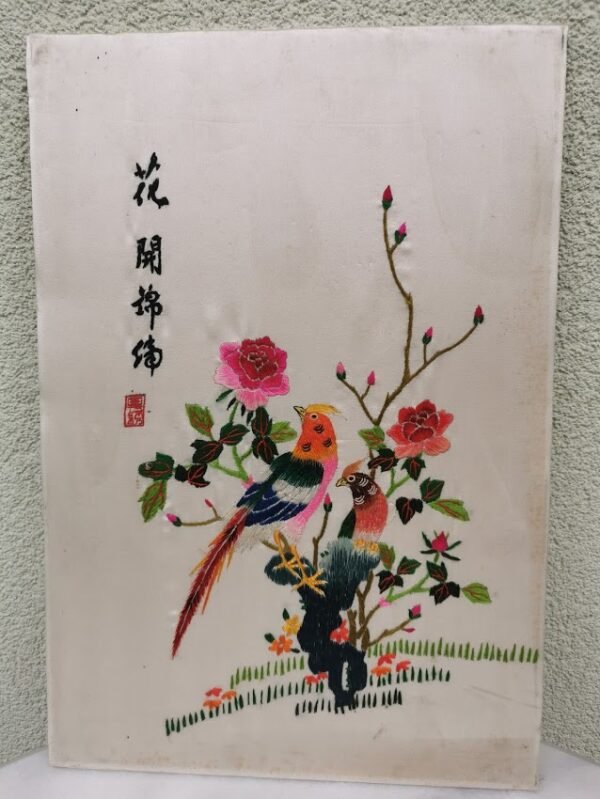 花開錦繡